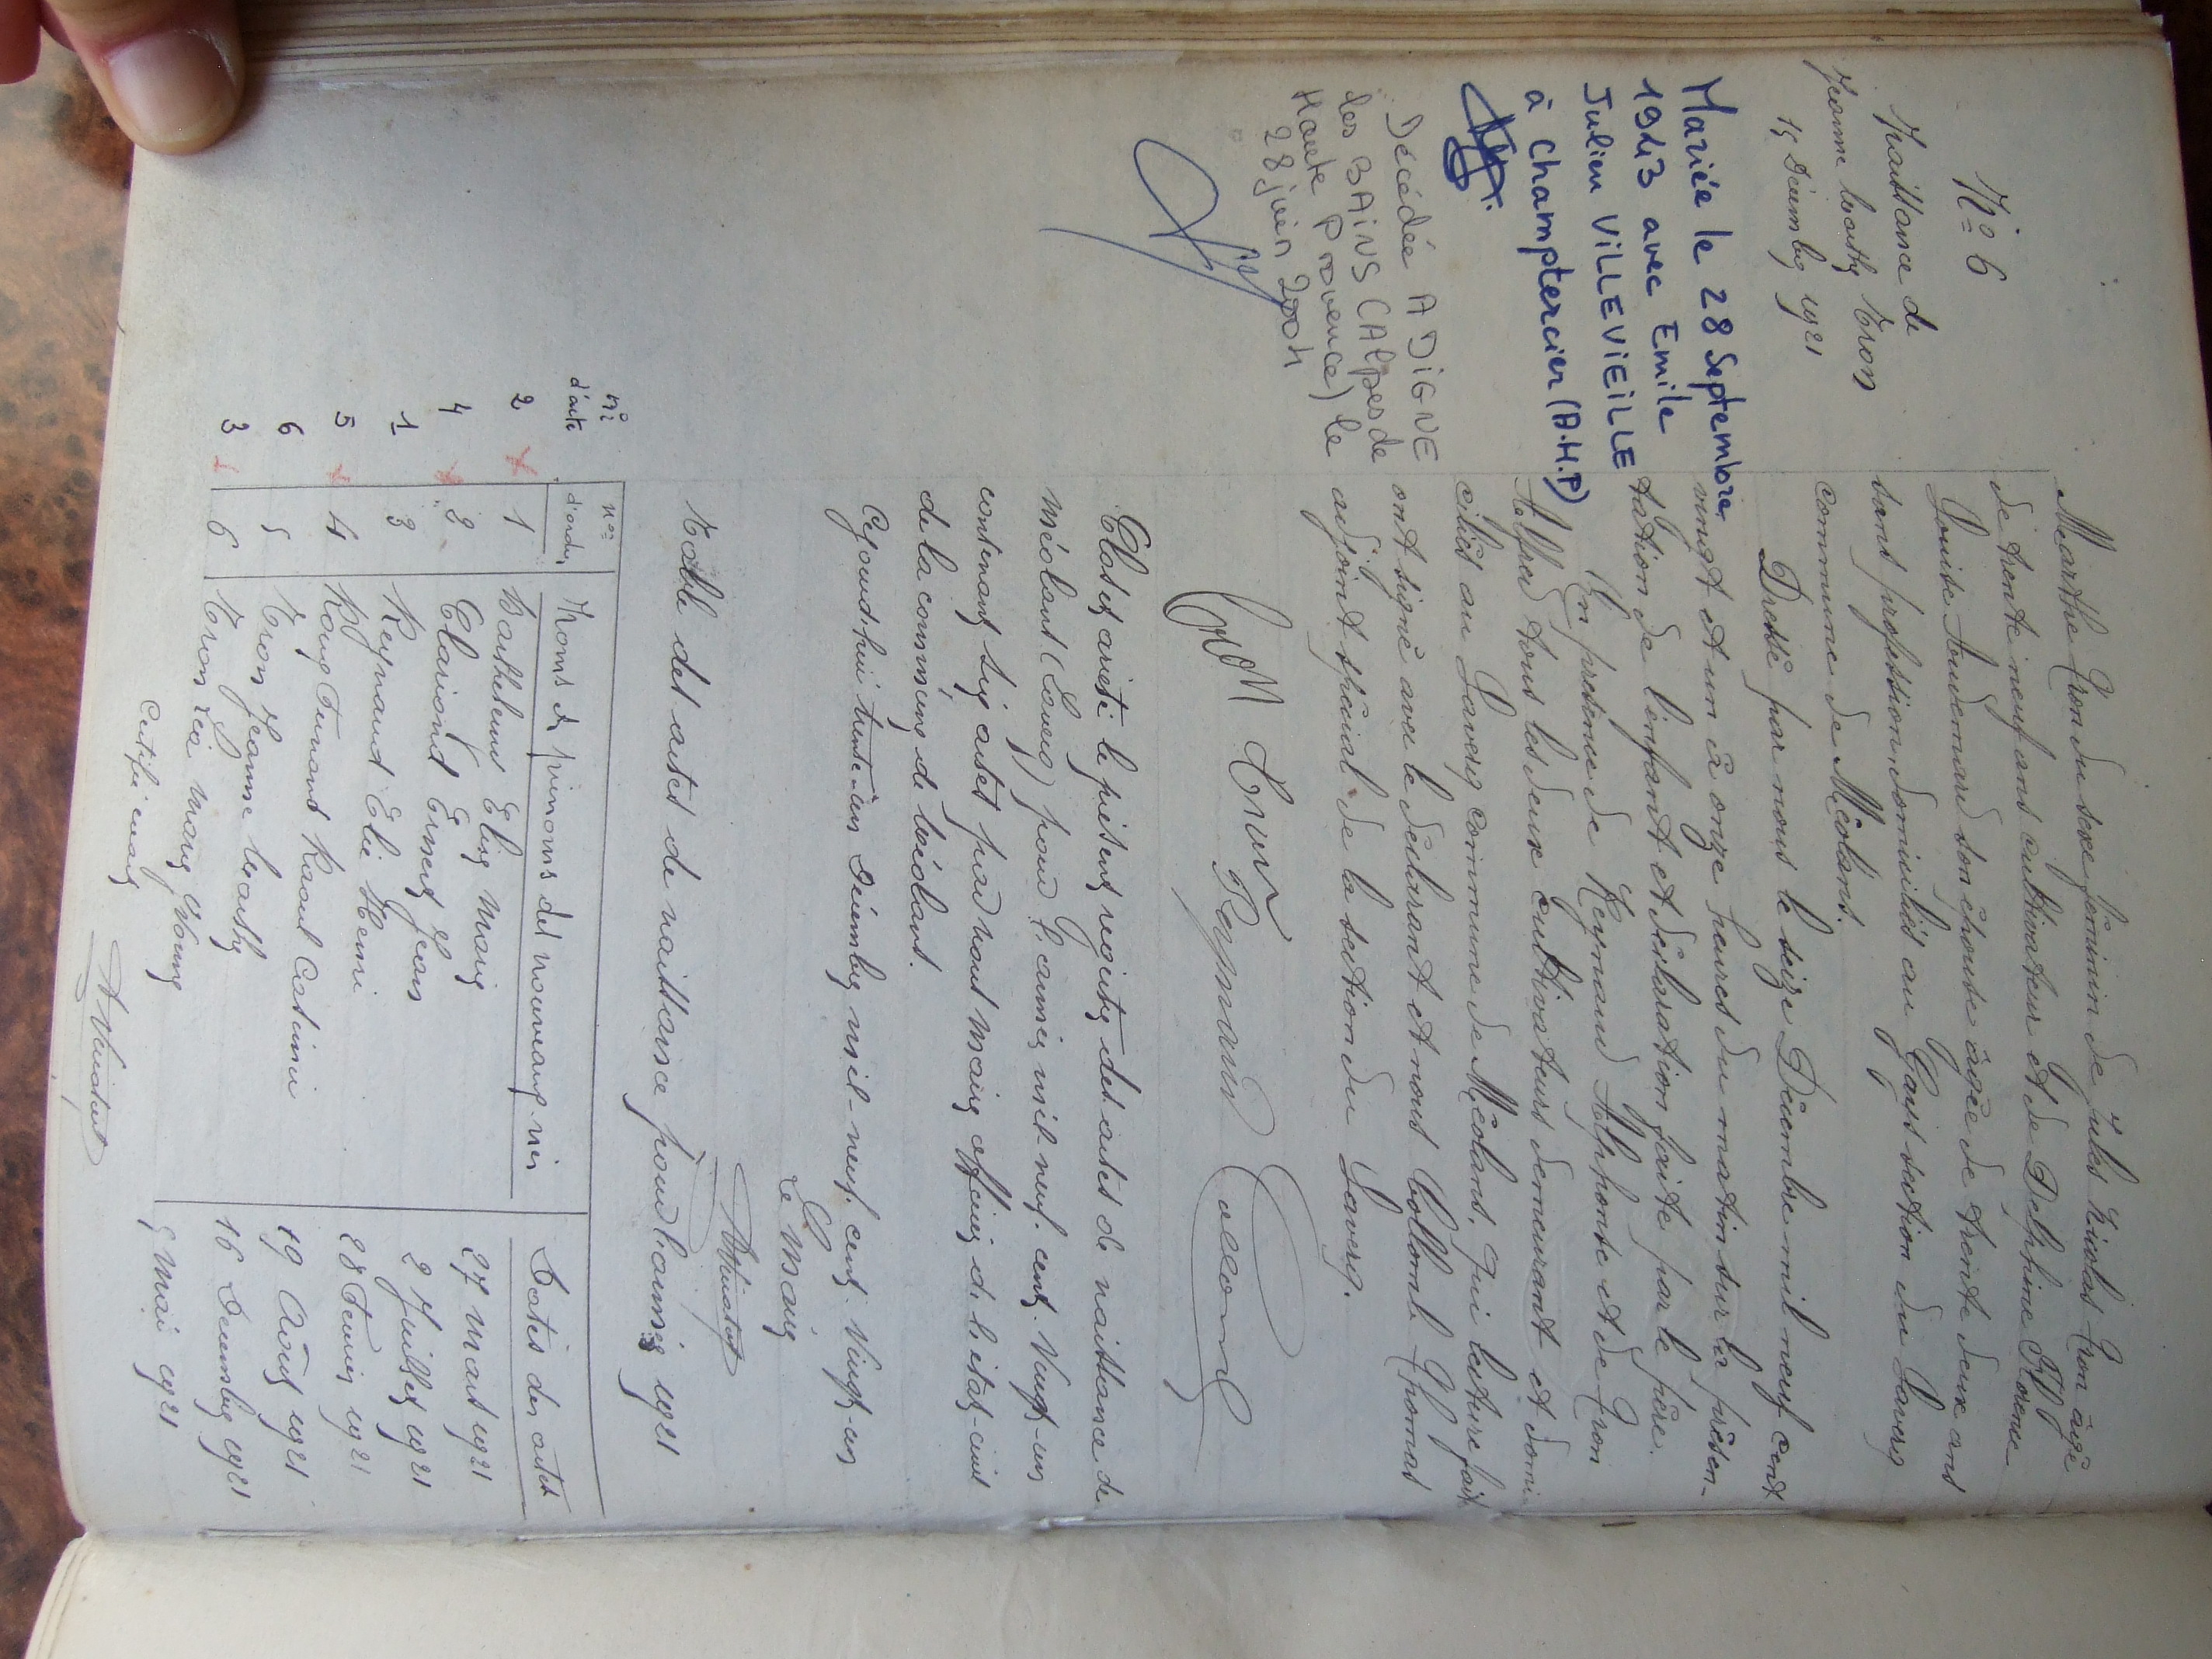 N° 6
Naissance de
Jeanne Marthe Tron
15 Décembre 1921
Mariée le 28 Septembre
1943 avec Emile
Julien VILLEVIEILLE
à Champtercier (A.H.P)
Décédée A DIGNE
les BAINS (Alpes de
Haute Provence) le
28 juin 2004
Marthe Tron du sexe féminin de Jules Nicolas Tron âgé
de trente neuf ans cultivateur et de Delphine
Louise Audemard son épouse âgée de trente deux ans
sans profession, domiciliés au section du Laverq
commune de Méolans.
Dressé par nous le seize Décembre mil neuf cent
vingt et un à onze heures du matin sur la présen-
tation de l'enfant et déclaration faite par le père.
En présence de Reynaud Alphonse et de Tron
Alfred tous les deux cultivateurs demeurant et domi
ciliés au Laverq commune de Méolans, qui lecture faite
ont signé avec le déclarant et nous Collomb Thomas
adjoint spécial de la section du Laverq.
Tron Reynaud Collomb
Clos et arrêté le présent registre des actes de naissance de
Méolans (Laverq) pour l'année mil neuf cent Vingt-un
contenant six actes par nous Maire officier de l'état-civil
de la commune de Méolans.
Ce jourd'hui trente un Décembre mil-neuf cent Vingt-un
Le Maire
Table des actes de naissance pour l'année 1921
Nos d'acte nos d'ordre Noms et prénoms des nouveaux-nés Dates des actes
2 1 Barthelemy Elise Marie 27 Mars 1921
4 2 Clariond Ernest Jean 2 Juillet 1921
1 3 Reynaud Elie Henri 28 Février 1921
5 4 Roux Fernand Raoul Casimir 19 Août 1921
6 5 Tron Jeanne Marthe 16 Décembre 1921
3 6 Tron Léa Marie 5 Mai 1921
Certifié exact